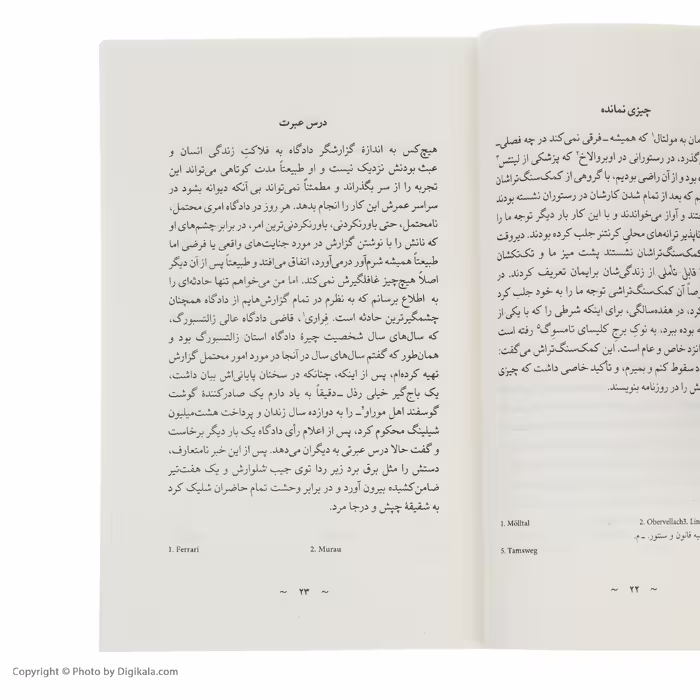 چیزی نمانده
مان به مولتال¹ که همیشه ـ فرقی نمی‌کند در چه فصلی ـ
گذرد، در رستورانی در اوبروالاخ² که پزشکی از لینتس³
بود و از آن راضی بودیم، با گروهی از کمک‌سنگ‌تراشان
م که بعد از تمام شدن کارشان در رستوران نشسته بودند
تند و آواز می‌خواندند و با این کار بار دیگر توجه ما را
ناپذیر ترانه‌های محلیِ کرنتنر جلب کرده بودند. دیروقت
کمک‌سنگ‌تراشان نشستند پشت میز ما و تک‌تکشان
قابل تأملی از زندگی‌شان برایمان تعریف کردند. در
صاً آن کمک‌سنگ‌تراشی توجه ما را به خود جلب کرد
کرد، در هفده‌سالگی، برای اینکه شرطی را که با یکی از
ه بوده ببرد، به نوکِ برجِ کلیسای تامسوگ⁵ رفته است
انزد خاص و عام است. این کمک‌سنگ‌تراش می‌گفت:
د سقوط کنم و بمیرم، و تأکید خاصی داشت که چیزی
ش را در روزنامه بنویسند.
1. Mölltal
2. Obervellach
3. Lin
یه قانون و سنتور. ـ م.
5. Tamsweg
~ ۲۲ ~
درس عبرت
هیچ‌کس به اندازهٔ گزارشگر دادگاه به فلاکتِ زندگی انسان و
عبث بودنش نزدیک نیست و او طبیعتاً مدت کوتاهی می‌تواند این
تجربه را از سر بگذراند و مطمئناً نمی‌تواند بی آنکه دیوانه بشود در
سراسر عمرش این کار را انجام بدهد. هر روز در دادگاه امری محتمل،
نامحتمل، حتی باورنکردنی، باورنکردنی‌ترین امر، در برابر چشم‌های او
که نانش را با نوشتن گزارش در مورد جنایت‌های واقعی یا فرضی اما
طبیعتاً همیشه شرم‌آور درمی‌آورد، اتفاق می‌افتد و طبیعتاً پس از آن دیگر
اصلاً هیچ‌چیز غافلگیرش نمی‌کند. اما من می‌خواهم تنها حادثه‌ای را
به اطلاع برسانم که به نظرم در تمام گزارش‌هایم از دادگاه همچنان
چشمگیرترین حادثه است. فِراری¹، قاضی دادگاه عالی زالتسبورگ،
که سال‌های سال شخصیت چیرهٔ دادگاه استان زالتسبورگ بود و
همان‌طور که گفتم سال‌های سال در آنجا در مورد امور محتمل گزارش
تهیه کرده‌ام، پس از اینکه، چنانکه در سخنان پایانی‌اش بیان داشت،
یک باج‌گیر خیلی رذل ـ دقیقاً به یاد دارم یک صادرکنندهٔ گوشت
گوسفند اهل موراو² ـ را به دوازده سال زندان و پرداخت هشت‌میلیون
شیلینگ محکوم کرد، پس از اعلام رأی دادگاه یک بار دیگر برخاست
و گفت حالا درس عبرتی به دیگران می‌دهد. پس از این خبر نامتعارف،
دستش را مثل برق برد زیر ردا توی جیب شلوارش و یک هفت‌تیر
ضامن‌کشیده بیرون آورد و در برابر وحشت تمام حاضران شلیک کرد
به شقیقهٔ چپش و درجا مرد.
1. Ferrari
2. Murau
~ ۲۳ ~
Copyright © Photo by Digikala.com